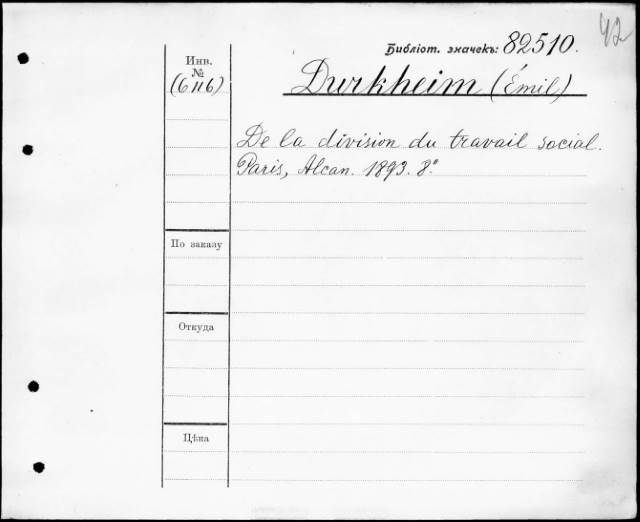 42
Библіот. значекъ: 82510.
Инв.
№
(6116)
Durkheim (Émil)
De la division du travail social.
Paris, Alcan. 1893. 8º
По заказу
Откуда
Цѣна